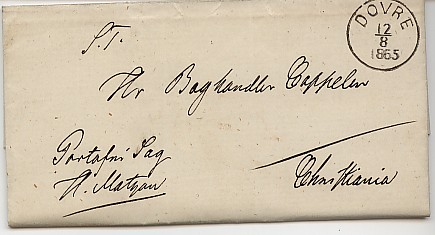 DOVRE
12
8
1865
S.T.
Hr Boghandler Cappelen
Portofri Sag
H. Matzau
Christiania